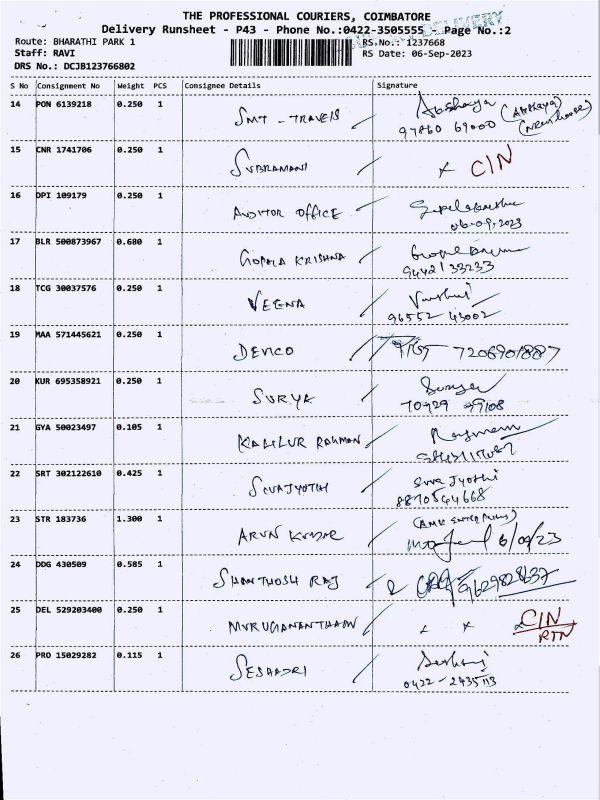 THE PROFESSIONAL COURIERS, COIMBATORE
Delivery Runsheet - P43 - Phone No.:0422-3505555 - Page No.:2
DELIVERY
Route: BHARATHI PARK 1 RS.No.: 1237668
Staff: RAVI RS Date: 06-Sep-2023
DRS No.: DCJB123766802
S No Consignment No Weight PCS Consignee Details Signature
14 PON 6139218 0.250 1 SMT - TRAVELS Abshaya
97860 69000
15 CNR 1741706 0.250 1 SUBRAMANI / x C/N
16 DPI 109179 0.250 1 AUDITOR OFFICE /
06-09-2023
17 BLR 500873967 0.680 1 GOPALA KRISHNA /
94421 33233
18 TCG 30037576 0.250 1 VEENA /
96552 43002
19 MAA 571445621 0.250 1 DEVCO / 7206901887
20 KUR 695358921 0.250 1 SURYA / Surya
70429 99108
21 GYA 50023497 0.105 1 KALILUR RAHMAN /
22 SRT 302122610 0.425 1 SIVAJYOTHI / Siva Jyothi
8870544668
23 STR 183736 1.300 1 ARUN KUMAR /
6/09/23
24 DDG 430509 0.585 1 SHANTHOSH RAJ / 9629828637
25 DEL 529203400 0.250 1 MURUGANANTHAM / x x C/N
RTN
26 PRO 15029282 0.115 1 SESHADRI /
0422-2435113